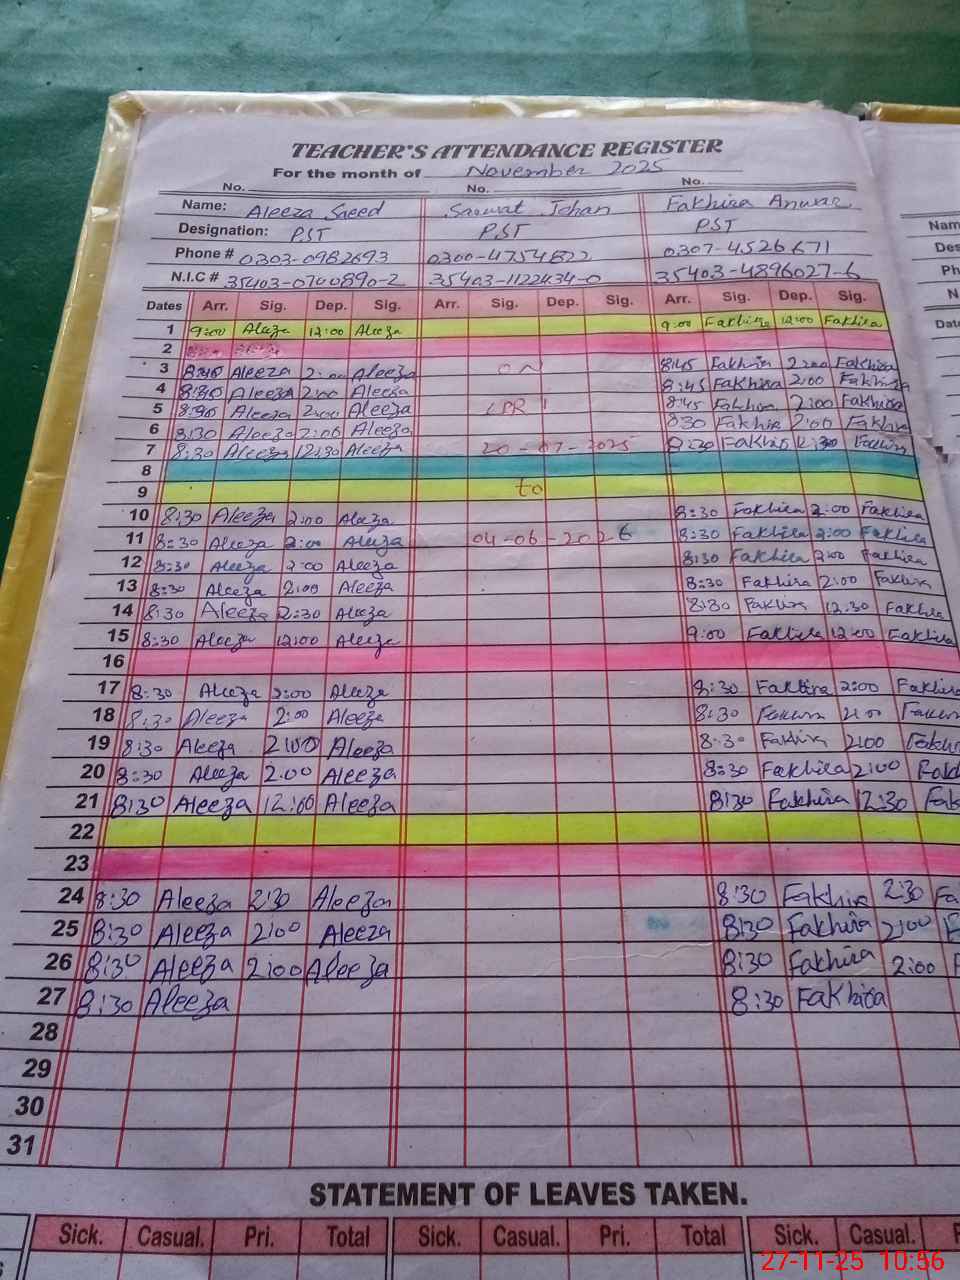 TEACHER'S ATTENDANCE REGISTER
For the month of November 2025
No. No. No.
Name: Aleeza Saeed Sarwat Jehan Fakhira Anwar
Designation: PST PST PST
Phone # 0303-0982693 0300-4754822 0307-4526671
N.I.C # 35403-0700890-2 35403-1122434-0 35403-4896027-6
Dates Arr. Sig. Dep. Sig. Arr. Sig. Dep. Sig. Arr. Sig. Dep. Sig.
1 9:00 Aleeza 12:00 Aleeza 9:00 Fakhira 12:00 Fakhira
2
3 Aleeza 2:00 Aleeza ON 8:45 Fakhira 2:00 Fakhira
4 Aleeza 2:00 Aleeza 8:45 Fakhira 2:00 Fakhira
5 Aleeza 2:00 Aleeza LPR 8:45 Fakhira 2:00 Fakhira
6 8:30 Aleeza 2:00 Aleeza 8:30 Fakhira 2:00 Fakhira
7 8:30 Aleeza 12:30 Aleeza 20-07-2025 8:30 Fakhira 12:30 Fakhira
8
9 to
10 8:30 Aleeza 2:00 Aleeza 8:30 Fakhira 2:00 Fakhira
11 8:30 Aleeza 2:00 Aleeza 04-06-2026 8:30 Fakhira 2:00 Fakhira
12 8:30 Aleeza 2:00 Aleeza 8:30 Fakhira 2:00 Fakhira
13 8:30 Aleeza 2:00 Aleeza 8:30 Fakhira 2:00 Fakhira
14 8:30 Aleeza 2:30 Aleeza 8:30 Fakhira 12:30 Fakhira
15 8:30 Aleeza 12:00 Aleeza 9:00 Fakhira 12:00 Fakhira
16
17 8:30 Aleeza 2:00 Aleeza 8:30 Fakhira 2:00 Fakhira
18 8:30 Aleeza 2:00 Aleeza 8:30 Fakhira 2:00
19 8:30 Aleeza 2:00 Aleeza 8:30 Fakhira 2:00
20 8:30 Aleeza 2:00 Aleeza 8:30 Fakhira 2:00
21 8:30 Aleeza 12:00 Aleeza 8:30 Fakhira 12:30
22
23
24 8:30 Aleeza 2:30 Aleeza 8:30 Fakhira 2:30
25 8:30 Aleeza 2:00 Aleeza 8:30 Fakhira 2:00
26 8:30 Aleeza 2:00 Aleeza 8:30 Fakhira 2:00
27 8:30 Aleeza 8:30 Fakhira
28
29
30
31
STATEMENT OF LEAVES TAKEN.
Sick. Casual. Pri. Total Sick. Casual. Pri. Total Sick. Casual.
27-11-25 10:56